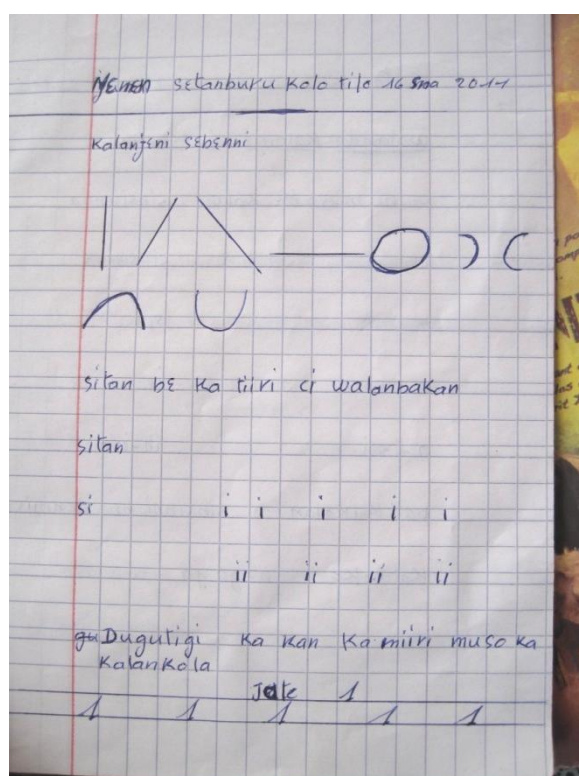 Nyɛmɛn sɛtanburu kalo tile 16 san 2011
Kalanjɛni sɛbɛnni
sitan bɛ ka tiiri ci walanbakan
sitan
si i i i i i
ii ii ii ii
Dugutigi ka kan ka miiri muso ka
kalan kola
Jate 1
1 1 1 1 1